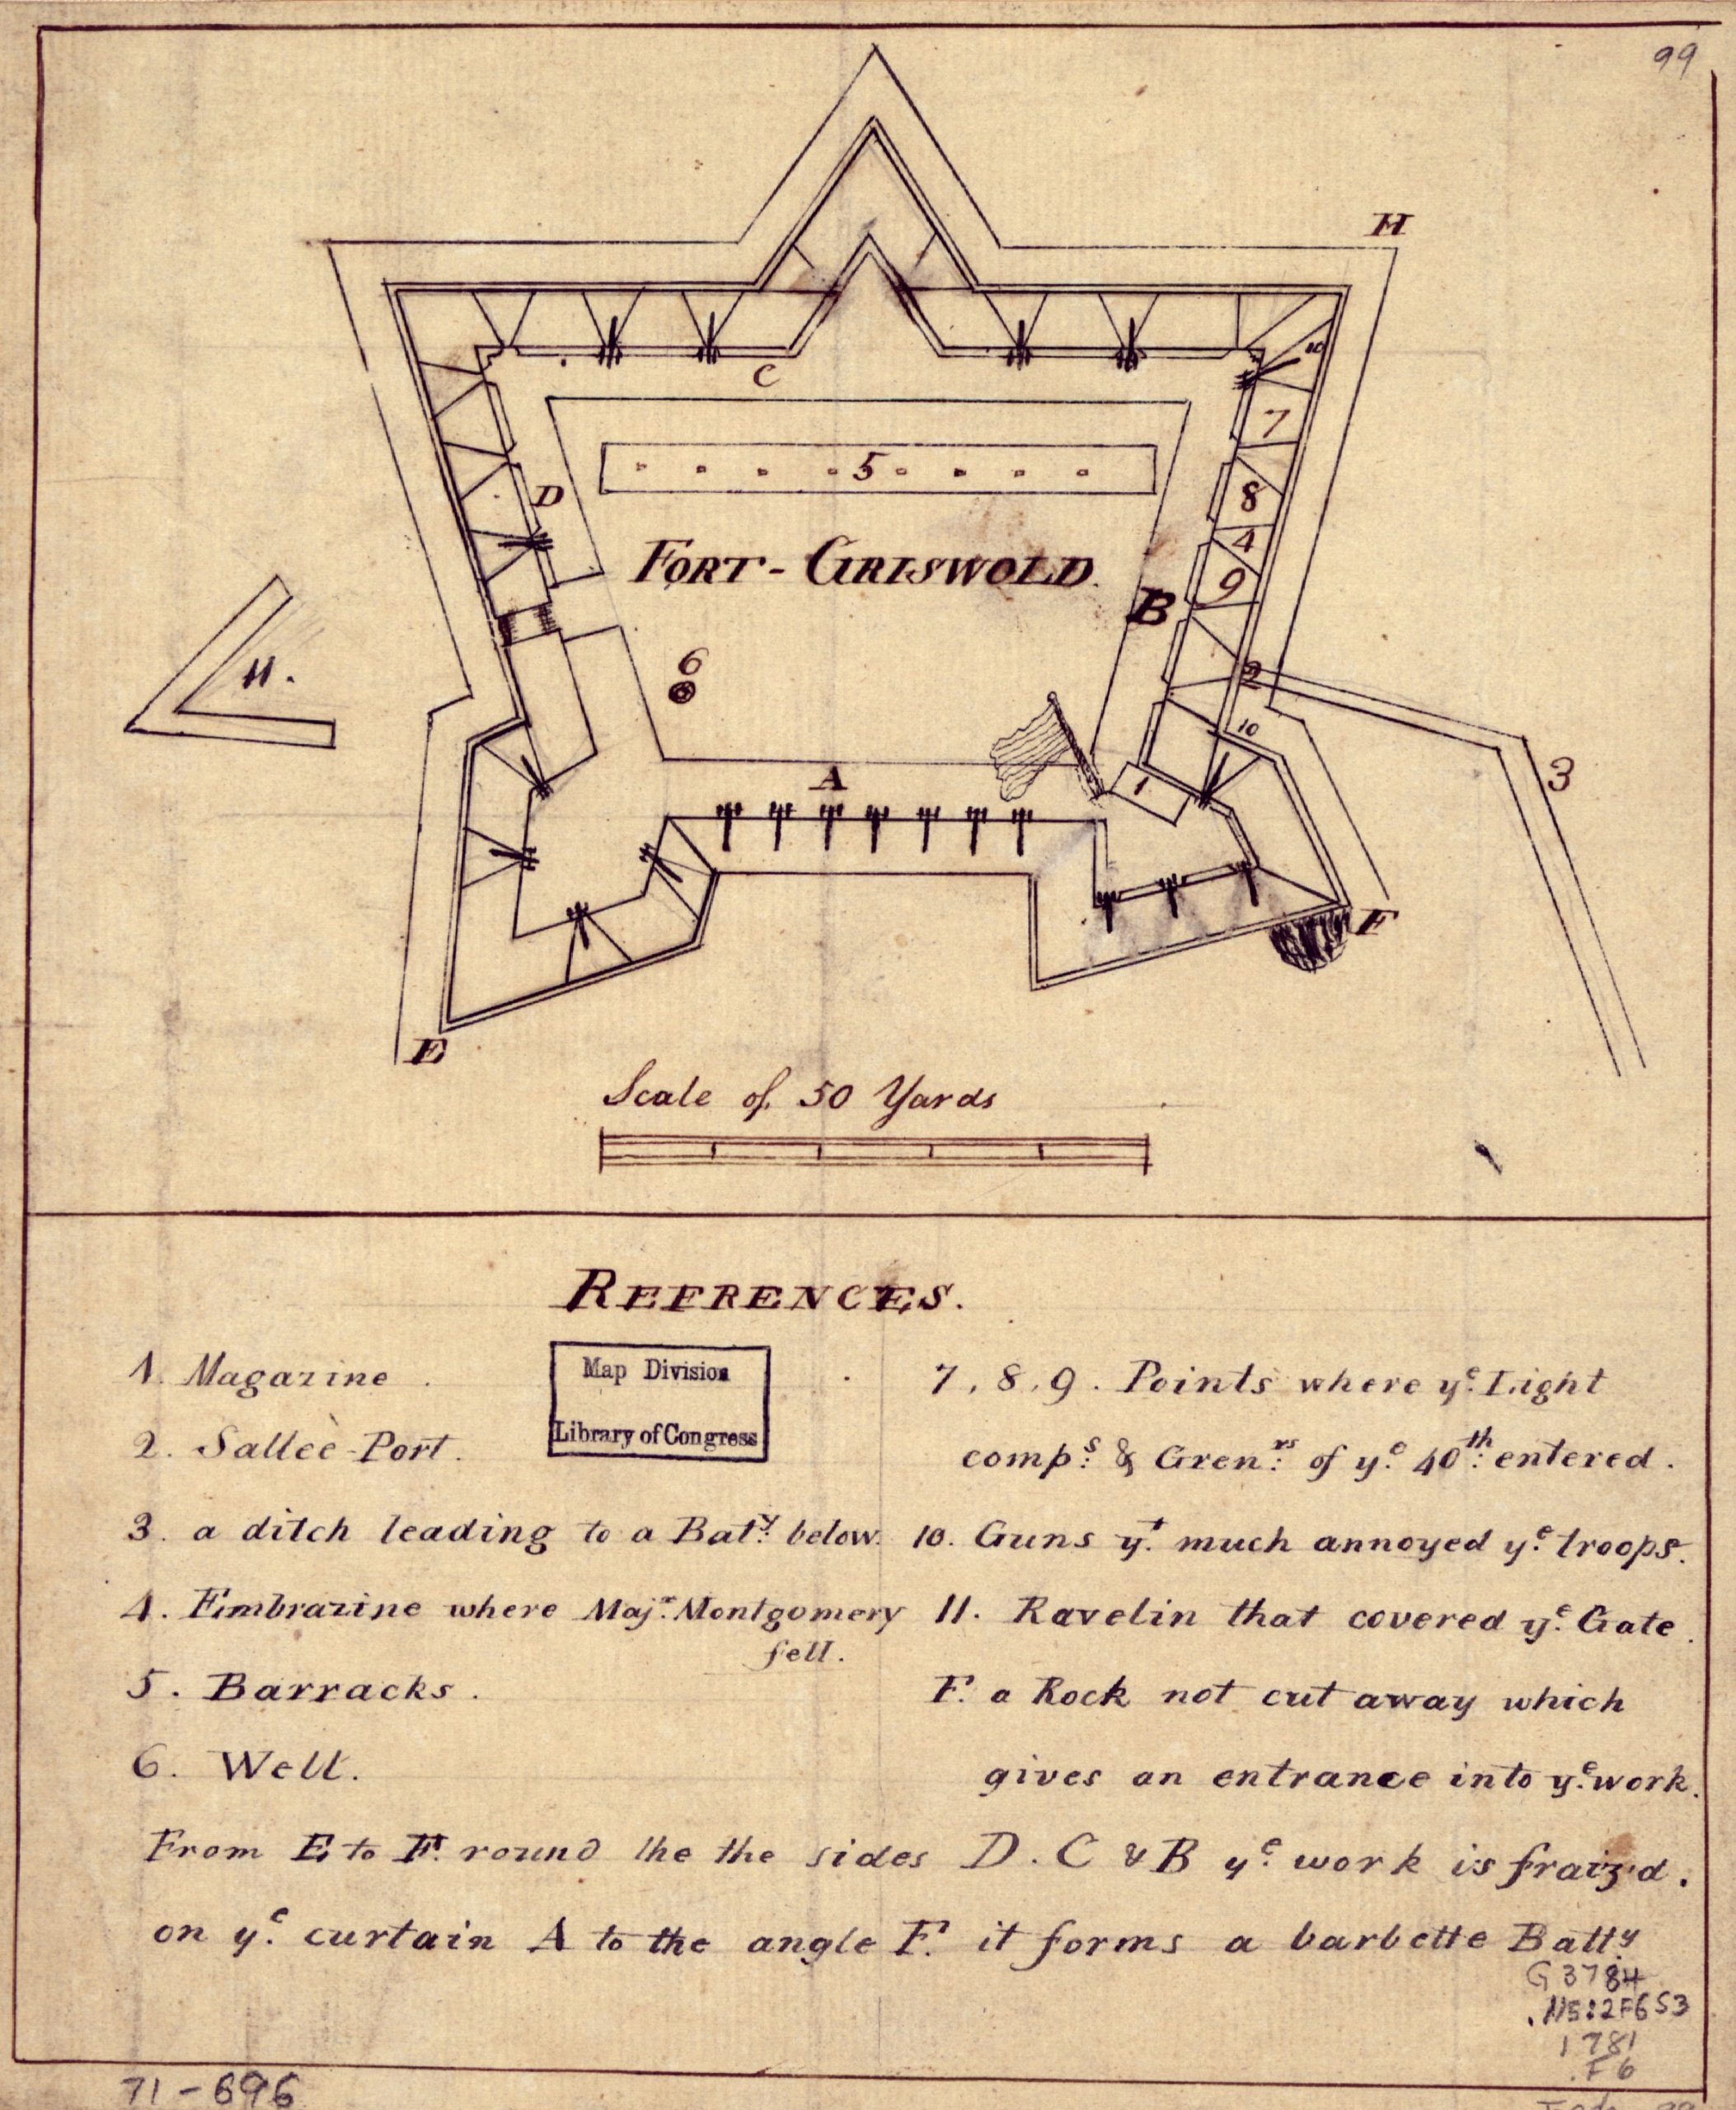 99
H
10
C
7
5
8
D
4
FORT-GRISWOLD.
9
B
6
11.
2
10
3
A
1
F
E
Scale of 50 Yards
REFRENCES.
1. Magazine.
Map Division
Library of Congress
2. Salleè-Port.
3. a ditch leading to a Bat.y below.
4. Embrazine where Maj.r Montgomery
fell.
5. Barracks.
6. Well.
7, 8, 9. Points where y.e Light
comp.s & Gren.rs of y.e 40.th entered.
10. Guns y.t much annoyed y.e troops.
11. Ravelin that covered y.e Gate.
F. a Rock not cut away which
gives an entrance into y.e work.
From E to F. round the the sides D. C & B y.e work is fraiz'd.
on y.e curtain A to the angle F. it forms a barbette Batt.y
G3784
.N5:2F6S3
1781
.F6
71-696